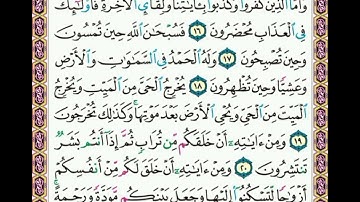 وَأَمَّا ٱلَّذِينَ كَفَرُوا۟ وَكَذَّبُوا۟ بِـَٔايَـٰتِنَا وَلِقَآئِ ٱلْـَٔاخِرَةِ فَأُو۟لَـٰٓئِكَ
فِى ٱلْعَذَابِ مُحْضَرُونَ ١٦ فَسُبْحَـٰنَ ٱللَّهِ حِينَ تُمْسُونَ
وَحِينَ تُصْبِحُونَ ١٧ وَلَهُ ٱلْحَمْدُ فِى ٱلسَّمَـٰوَٰتِ وَٱلْأَرْضِ
وَعَشِيًّا وَحِينَ تُظْهِرُونَ ١٨ يُخْرِجُ ٱلْحَىَّ مِنَ ٱلْمَيِّتِ وَيُخْرِجُ
ٱلْمَيِّتَ مِنَ ٱلْحَىِّ وَيُحْىِ ٱلْأَرْضَ بَعْدَ مَوْتِهَا ۚ وَكَذَٰلِكَ تُخْرَجُونَ
١٩ وَمِنْ ءَايَـٰتِهِۦٓ أَنْ خَلَقَكُم مِّن تُرَابٍ ثُمَّ إِذَآ أَنتُم بَشَرٌ
تَنتَشِرُونَ ٢٠ وَمِنْ ءَايَـٰتِهِۦٓ أَنْ خَلَقَ لَكُم مِّنْ أَنفُسِكُمْ
أَزْوَٰجًا لِّتَسْكُنُوٓا۟ إِلَيْهَا وَجَعَلَ بَيْنَكُم مَّوَدَّةً وَرَحْمَةً ۚ